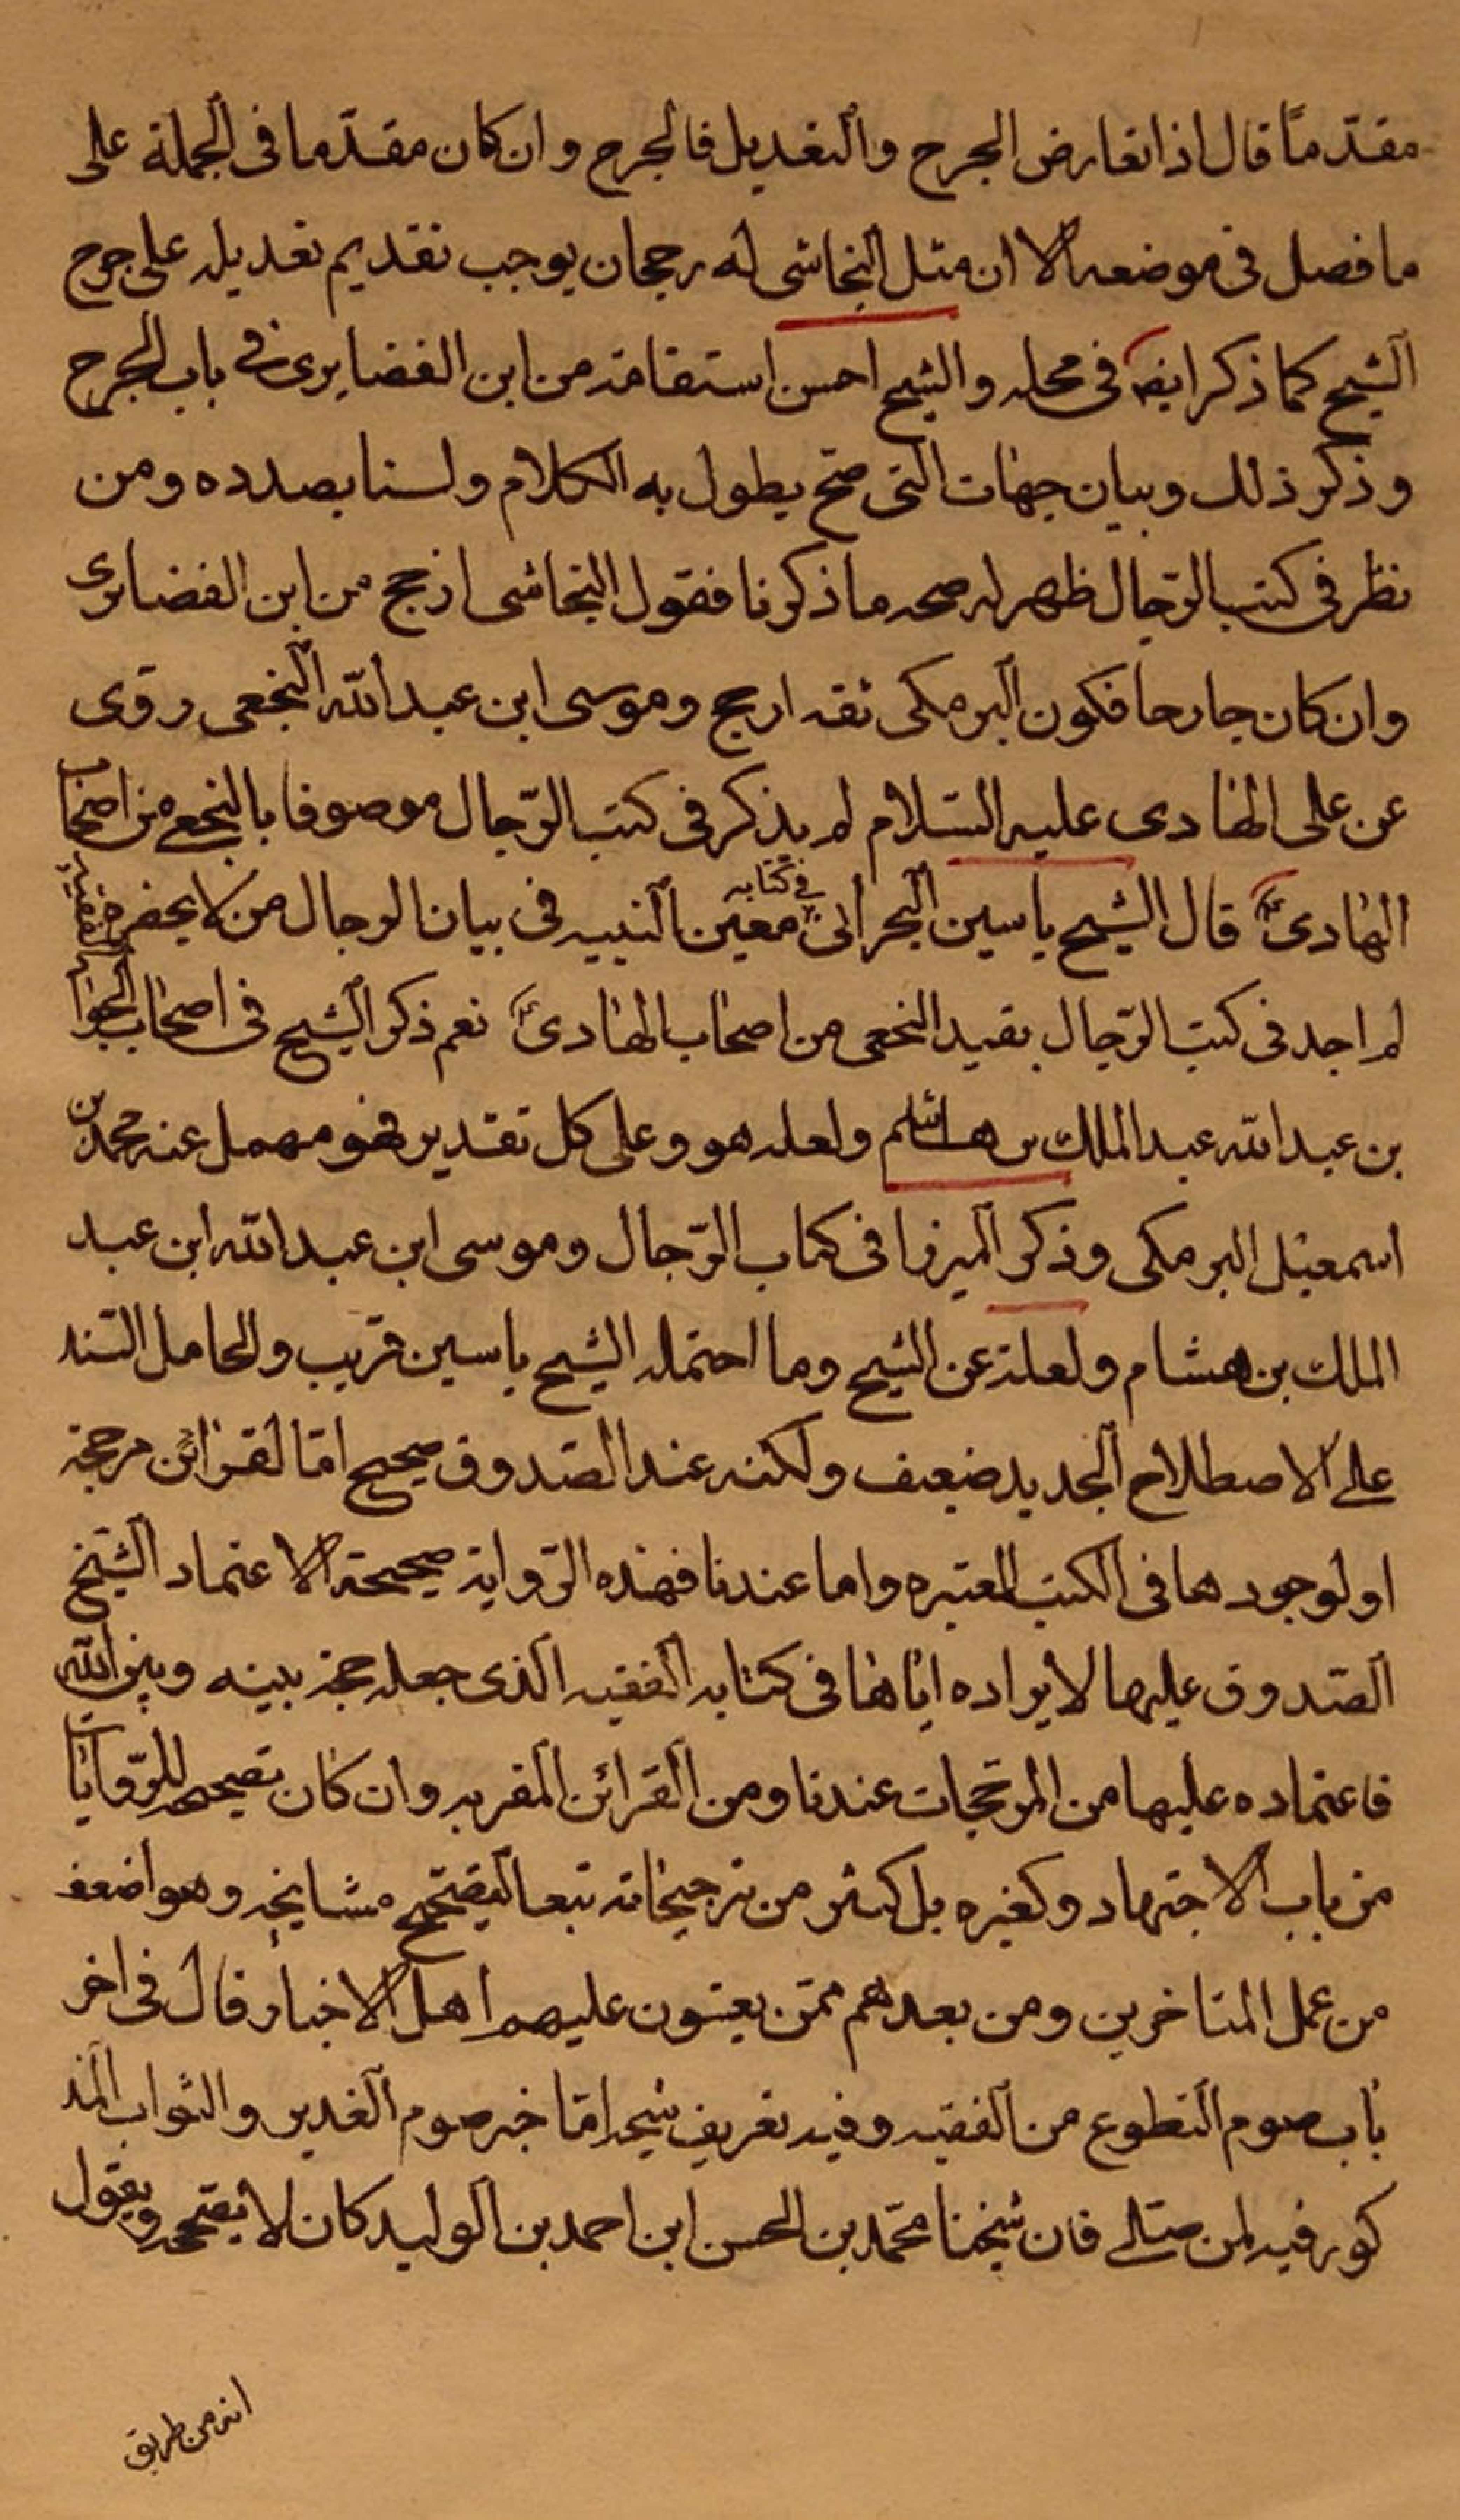 مقدّمًا قال اذا تعارض الجرح والتعديل فالجرح وان كان مقدّما فى الجملة على
ما فصل فى موضعه الا ان مثل النجاشى له رجحان يوجب تقديم تعديله على جرح
الشيخ كما ذكر ايضا فى محله والشيخ احسن استقامة من ابن الغضايرى فى باب الجرح
وذكر ذلك وبيان جهات التى صح يطول به الكلام ولسنا بصدده ومن
نظر فى كتب الرّجال ظهر له صحه ما ذكرنا فقول النجاشى ارجح من ابن الغضايرى
وان كان جارحا فكون البرمكى ثقه ارجح وموسى ابن عبد الله النخعى روى
عن على الهادى عليه السّلام لم يذكر فى كتب الرّجال موصوفا بالنخعى من اصحاب
الهادىؑ قال الشيخ ياسين البحرانى فى كتابه معين النبيه فى بيان الرجال من لا يحضره الفقيه
لم اجد فى كتب الرّجال بقيد النخعى من اصحاب الهادىؑ نعم ذكر الشيخ فى اصحاب الجواد
بن عبد الله عبد الملك بن هشام ولعله هو وعلى كل تقدير فهو مهمل عنه محمد بن
اسمعيل البرمكى وذكر الميرزا فى كتاب الرّجال وموسى ابن عبد الله ابن عبد
الملك بن هشام ولعله عن الشيخ وما احتمله الشيخ ياسين قريب والحاصل السّند
على الاصطلاح الجديد ضعيف ولكنه عند الصّدوق صحيح امّا لقرائن مرجحة
او لوجودها فى الكتب المعتبره واما عندنا فهذه الرّواية صحيحة لاعتماد الشّيخ
الصّدوق عليها لايراده ايّاها فى كتابه الفقيه الذى جعله حجة بينه وبين الله
فاعتماده عليها من المرجّحات عندنا ومن القرائن المقربه وان كان تصحيحه للرّوايات
من باب الاجتهاد وكغيره بل كثير من ترجيحاته تبعا لتصحيح مشايخه وهو اضعف
من عمل المتاخرين ومن بعدهم ممّن يعيبون عليهم اهل الاخبار قال فى اخر
باب صوم التطوع من الفقيه وفيه تعريف شيخه امّا خبر صوم الغدير والثواب المذ
كور فيه لمن صامه فان شيخنا محمّد بن الحسن ابن احمد بن الوليد كان لا يصححه ويقول
انه من طريق